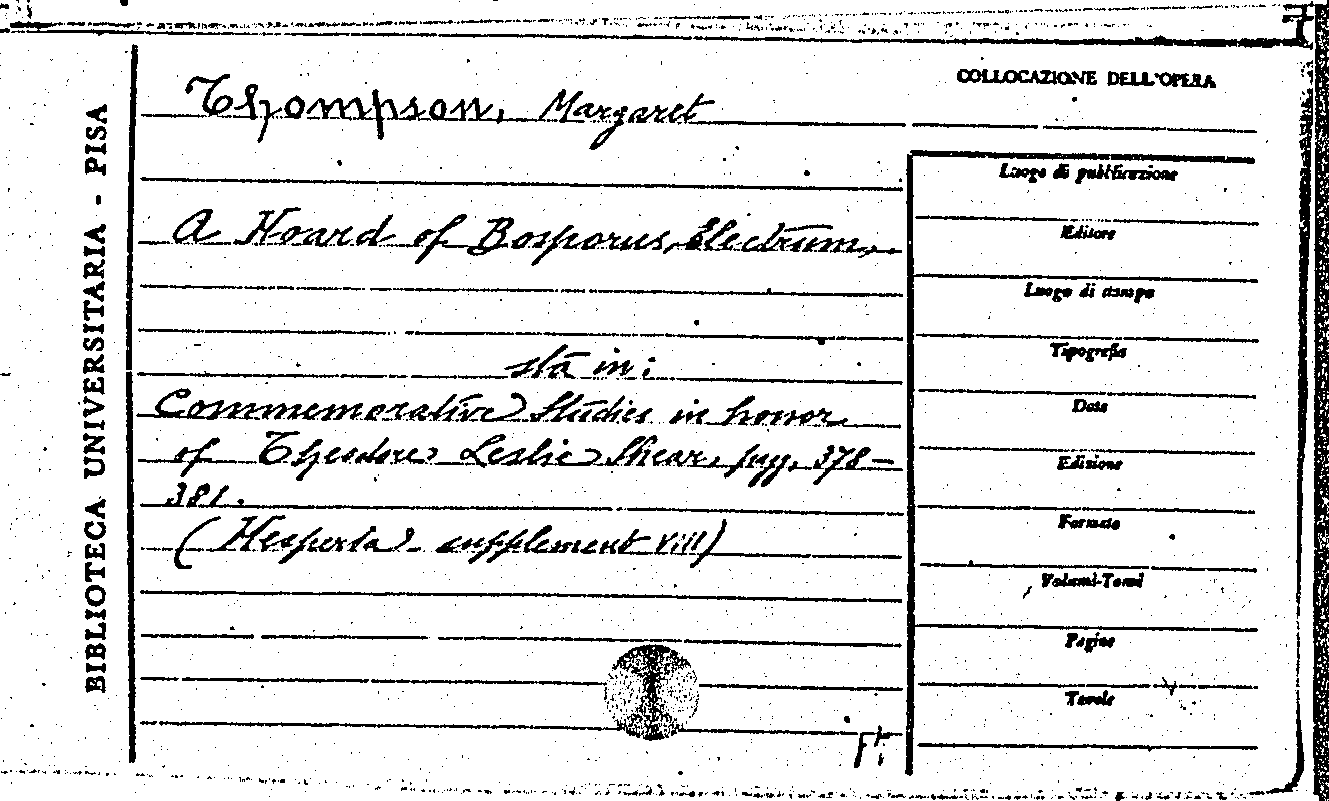 BIBLIOTECA UNIVERSITARIA - PISA
Thompson, Margaret
A Hoard of Bosporus Electrum,
sta in:
Commemorative Studies in honor
of Theodore Leslie Shear, pag. 378-
381.
(Hesperia - supplement VIII)
COLLOCAZIONE DELL'OPERA
Luogo di pubblicazione
Editore
Luogo di stampa
Tipografia
Data
Edizione
Formato
Volumi-Tomi
Pagine
Tavole